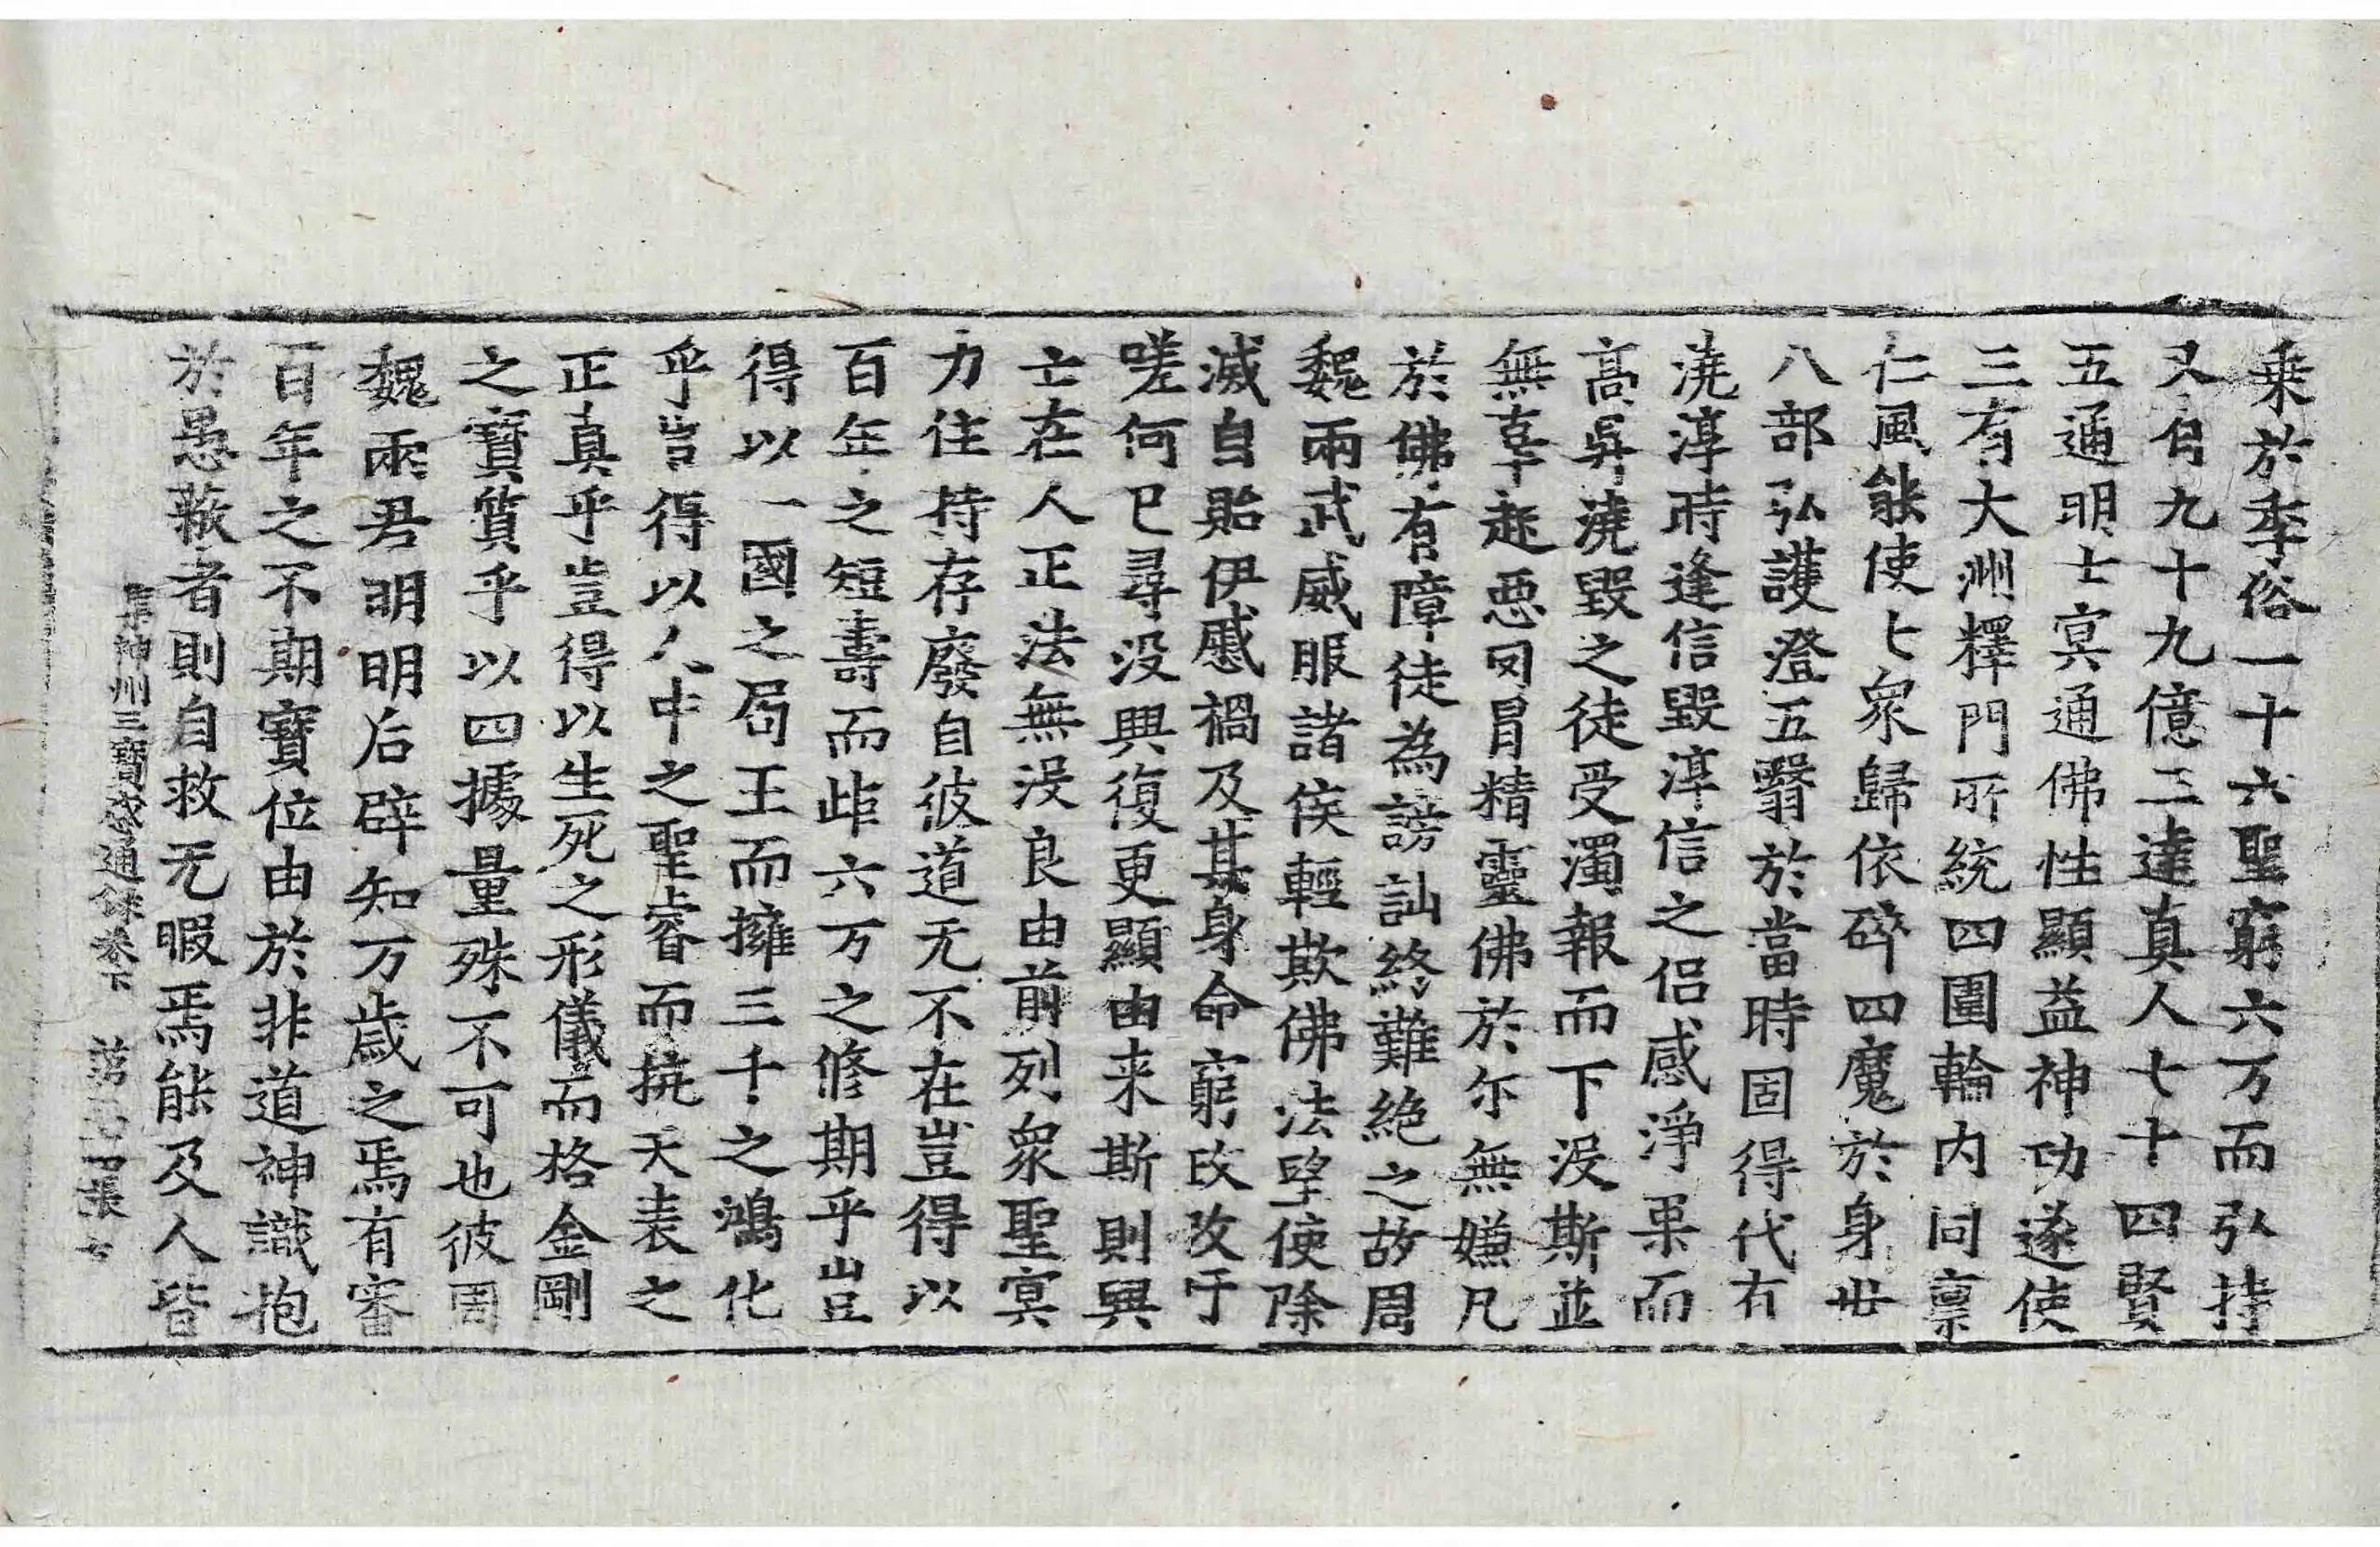 乗於季俗一十六聖窮六万而弘持
又有九十九億三達真人七十四賢
五通明士冥通佛性顯益神功遂使
三有大洲釋門所統四圍輪内同禀
仁風能使七衆歸依碎四魔於身世
八部弘護澄五翳於當時固得代有
澆淳時逢信毀淳信之侣感淨果而
高昇澆毀之徒受濁報而下没斯並
無辜起惡冈冒精靈佛於尓無嫌凡
於佛有障徒為謗訕終難絶之故周
魏兩武威服諸侯輕欺佛法望使除
滅自貽伊慼禍及其身命窮改攻于
嗟何已尋没興復更顯由来斯則興
亡在人正法無没良由前列衆聖冥
力住持存廢自彼道无不在豈得以
百年之短壽而岠六万之修期乎豈
得以一國之局王而擁三千之鴻化
乎豈得以人中之聖睿而抗天表之
正真乎豈得以生死之形儀而格金剛
之寶質乎以四據量殊不可也彼周
魏兩君明明后辟知万歲之焉有審
百年之不期寶位由於非道神識抱
於愚蔽者則自救无暇焉能及人皆
集神州三寶感通錄卷下 張